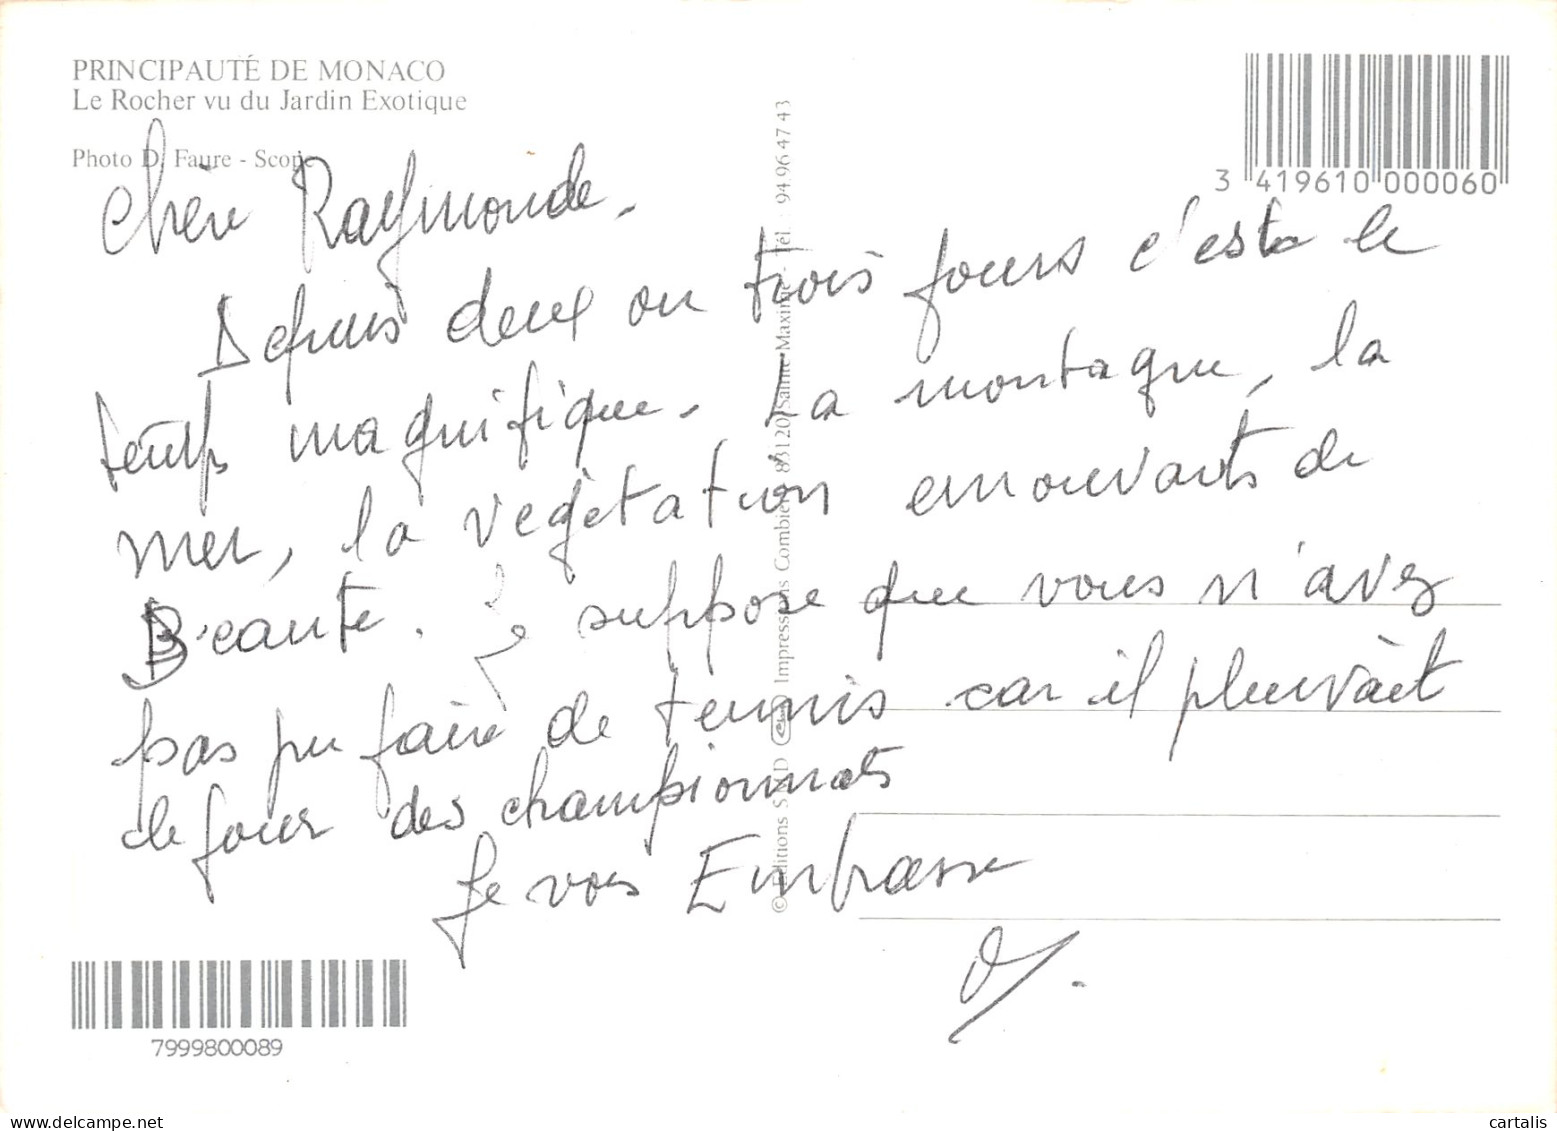 PRINCIPAUTÉ DE MONACO
Le Rocher vu du Jardin Exotique
Photo D. Faure - Scope
3 419610 000060
Chère Raymonde.
Depuis deux ou trois jours c'est le
temps magnifique. La montagne, la
mer, la végétation émouvants de
Beauté. Je suppose que vous n'avez
pas pu faire de tennis car il pleuvait
le jour des championnats
Je vous Embrasse
© Editions S D Impressions Combier 83120 Sainte-Maxime - Tél. : 94 96 47 43
7999800089
cartalis